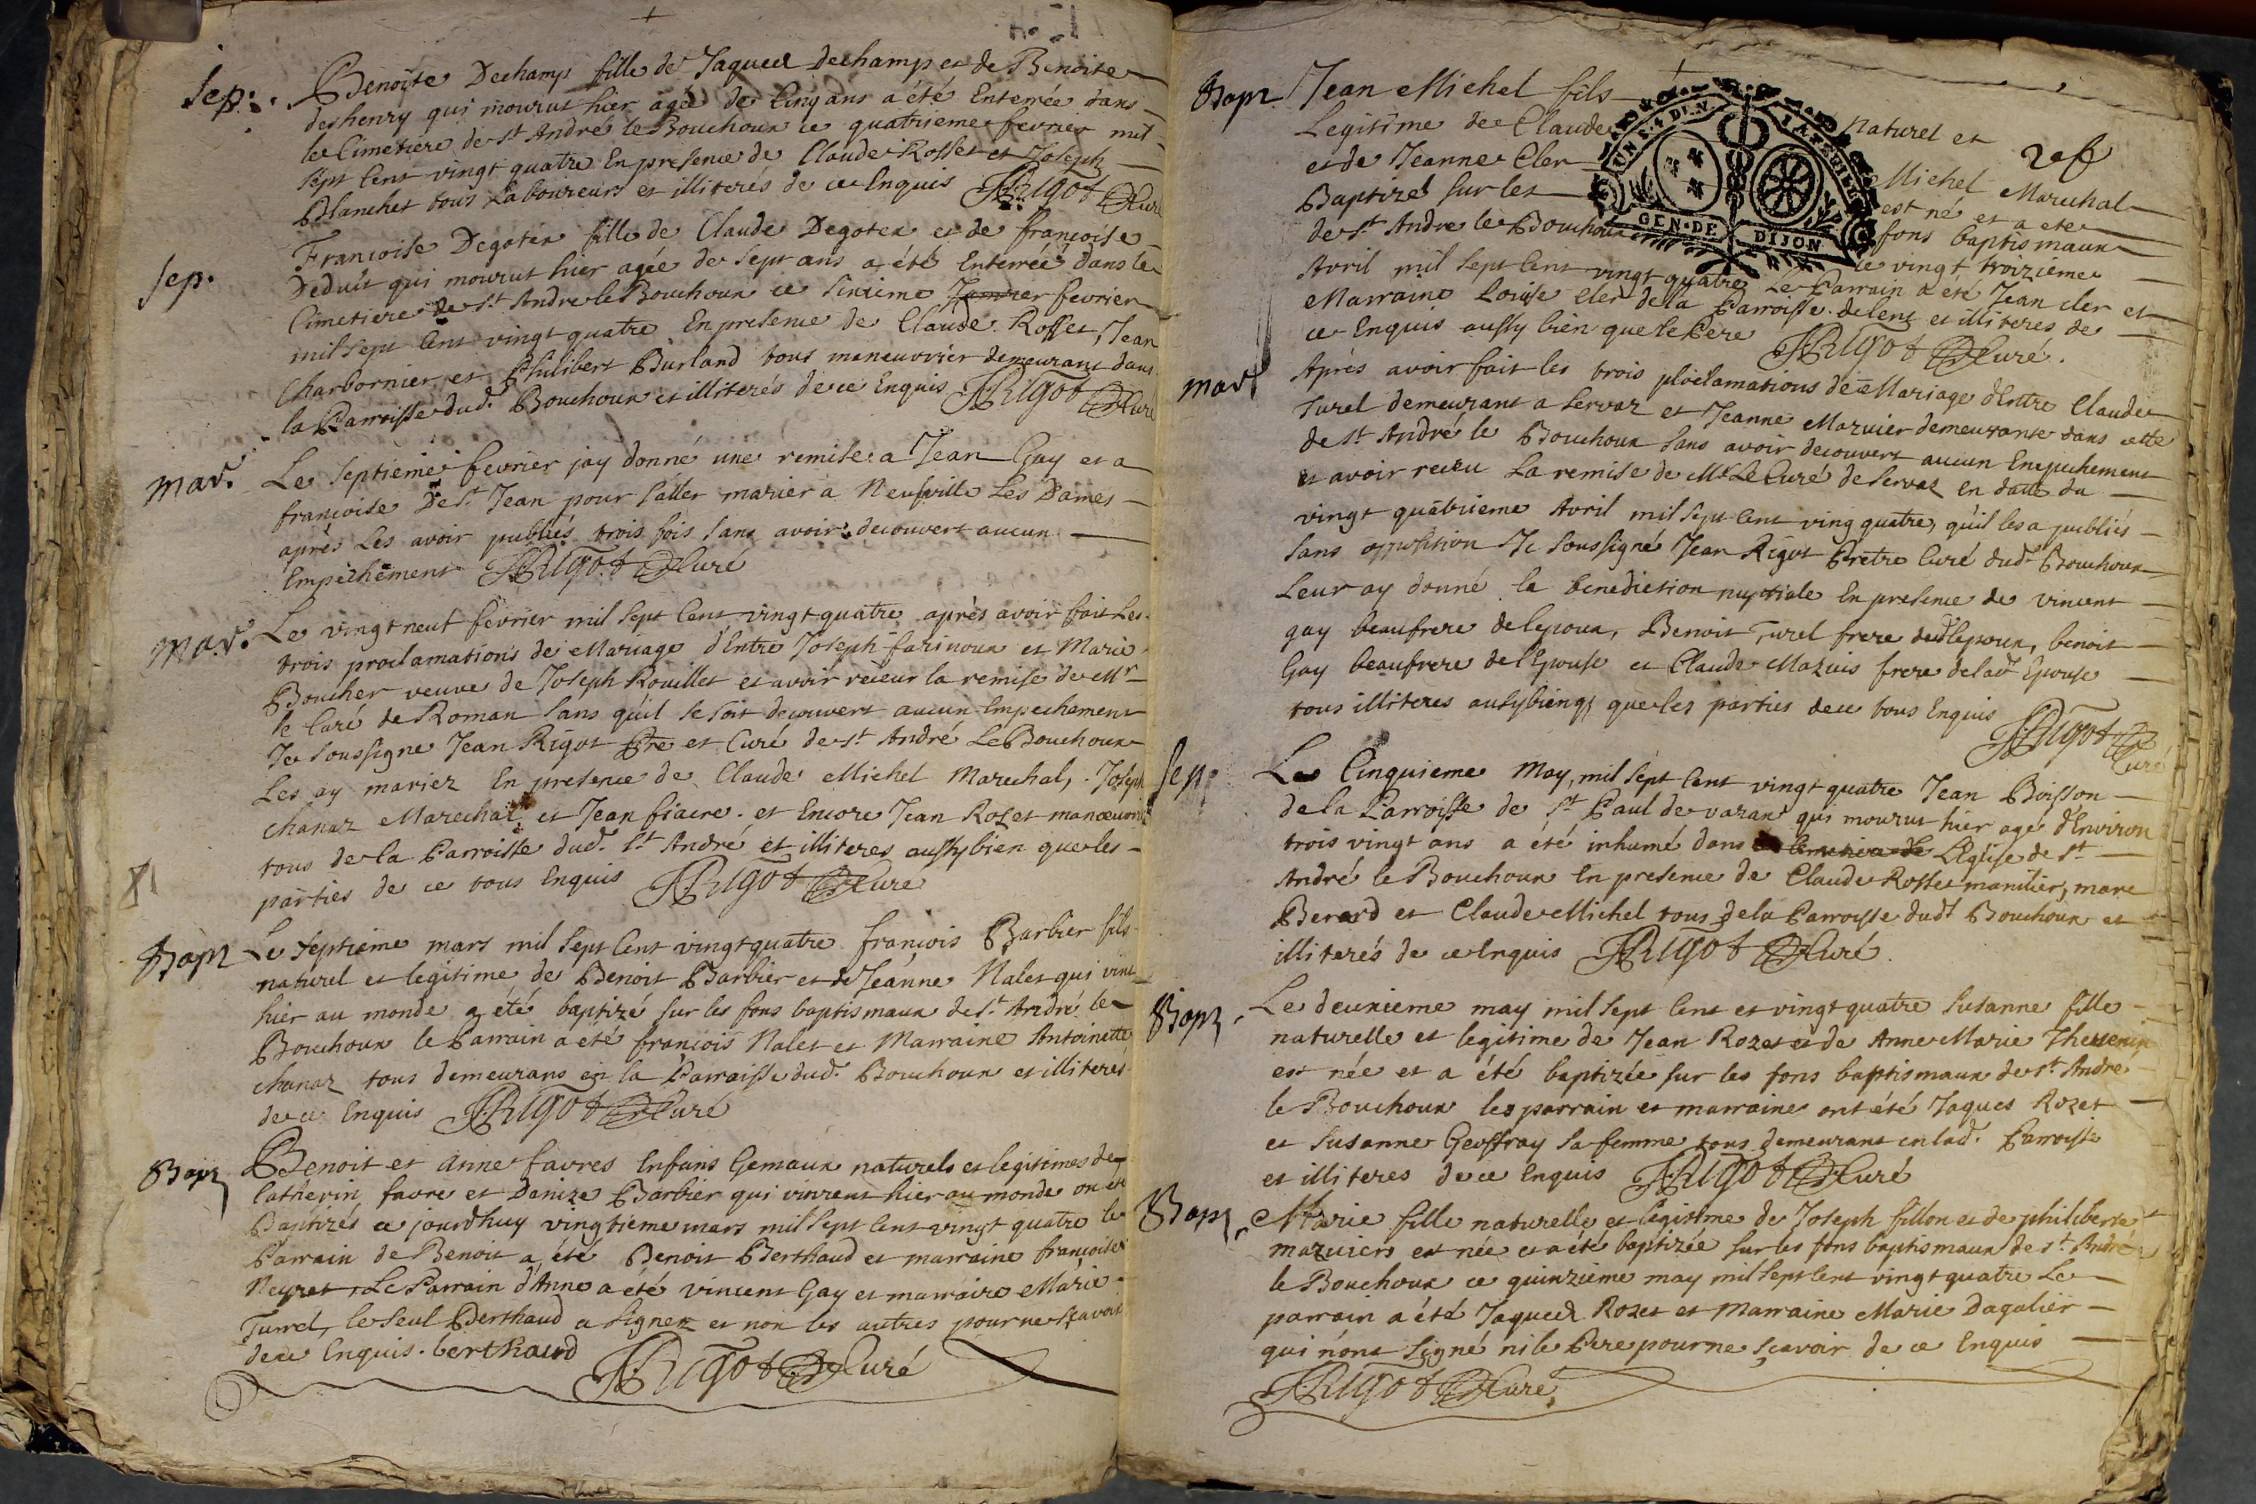 Sep. Benoite Dechamps fille de Jaques dechamp et de Benoite
deshenry qui mourut hier agée de Cinq ans a été Enterrée dans
le Cimetiere de St André le Bouchoux ce quatrieme fevrier mil
sept Cent vingt quatre En presence de Claude Rosset et Joseph
Blanchet tous Laboureurs et illiterés de ce Enquis JRigot Curé
Sep. Francoise Degoter fille de Claude Degoter et de francoise
Deduit qui mourut hier agée de sept ans a été Enterrée dans le
Cimetiere de St Andre le Bouchoux ce Sixieme Janvier fevrier
mil sept Cent vingt quatre En presence de Claude Rosset, Jean
Charbornier et Philibert Burland tous maneuvrier demeurant dans
la Parroisse dud. Bouchoux et illiterés de ce Enquis JRigot Curé
mar. Le Septieme fevrier jay donné une remise a Jean Gay et a
francoise De St Jean pour saller marier a Neufville Les Dames
aprés Les avoir publiés trois fois sans avoir decouvert aucun
Empechement JRigot Curé
mar. Le vingt neuf fevrier mil sept Cent vingt quatre aprés avoir fait Les
trois proclamations de Mariage d'Entre Joseph farinoux et Marie
Boucher veuve de Joseph Rouillet et avoir receur la remise de Mr
le Curé de Roman sans qu'il se soit decouvert aucun Empechement
Je soussigne Jean Rigot Ptre et Curé de St André Le Bouchoux
Les ay mariez En presence de Claude Michel Marechal, Joseph
chanaz Marechal et Jean fiacre. et Encore Jean Rozet manoeuvrier
tous de la Parroisse dud. St André et illiteres aussy bien que les
parties de ce tous Enquis JRigot Curé
Bapt Le septieme mars mil sept Cent vingt quatre francois Barbier fils
naturel et legitime de Benoit Barbier et de Jeanne Nalet qui vint
hier au monde a été baptizé sur les fons baptismaux de St André le
Bouchoux le Parrain a été francois Nalet et Marraine Antoinette
chanaz tous demeurans en la Parroisse dud. Bouchoux et illiterés
de ce Enquis JRigot Curé
Bapt Benoit et Anne favres Enfans Gemaux naturels et legitimes de
Catherin favre et Denize Barbier qui vinrent hier au monde on été
Baptizés ce jourd'huy vingtieme mars mil sept Cent vingt quatre le
Parrain de Benoit a été Benoit Berthaud et marraine francoise
Neyret, Le Parrain d'Anne a été vincent Gay et marraire Marie
Turrel, le seul Berthaud a signer et non les autres pour ne scavoir
de ce Enquis. berthaud JRigot Curé
Bapt Jean Michel fils naturel et
Legitime de Claude Michel Marechal
et de Jeanne Cler est né et a ete
Baptizé sur les fons baptismaux
de St Andre le Bouchoux ce vingt troizieme
Avril mil sept Cent vingt quatre Le Parrain a eté Jean cler et
Marraine Louise Cler de la Parroisse de lent et illiteres de
ce Enquis aussy bien que le Pere JRigot Curé.
UN S. 4 D. LA FEUIL
GEN. DE DIJON
mar Aprés avoir fait les trois ploclamations de Mariage d'Entre Claude
Turel demeurant a Servaz et Jeanne Mazuier demeurante dans cette
de St André le Bouchoux sans avoir decouvert aucun Enepechement
et avoir receu La remise de Mr Le Curé de Servaz En datte du
vingt quatrieme Avril mil sept Cent ving quatre, qu'il les a publiés
sans opposition Je soussigné Jean Rigot Pretre Curé dud Bouchoux
Leur ay donné la benediction nuptiale En presence de vincent
gay beaufrere de lepoux, Benoit Turel frere dud lepoux, benoit
Gay beaufrere de l'Epouse et Claude Mazuis frere de lad Epouse
tous illiteres ausybienq que les parties de ce tous Enquis JRigot
Curé
Sep. Le Cinquieme May, mil sept Cent vingt quatre Jean Boisson
de la Parroisse de St Paul de varax qui mourut hier agé d'Environ
trois vingt ans a été inhumé dans L'Eglise de St
André le Bouchoux En presence de Claude Rosset manilier, marc
Berard et Claude Michel tous de la Parroisse dudt Bouchoux et
illiterés de ce Enquis JRigot Curé.
Bapt Le deuxieme may mil sept Cent et vingt quatre Susanne fille
naturelle et legitime de Jean Rozet et de Anne Marie Thevenin
est née et a été baptizée sur les fons baptismaux de St André
le Bouchoux les parrain et marraine ont été Jaques Rozet
et Susanne Geoffray sa femme tous demeurant en lad. Parroisse
et illiteres de ce Enquis JRigot Curé
Bapt Marie fille naturelle et legitime de Joseph fillon et de philiberte
mazuiers est née et a été baptizée sur les fons baptismaux de St André
le Bouchoux ce quinzieme may mil sept Cent vingt quatre Le
parrain a été Jaques Rozet et Marraine Marie Dagalier
qui n'ont signé ni le Pere pour ne scavoir de ce Enquis
JRigot Curé